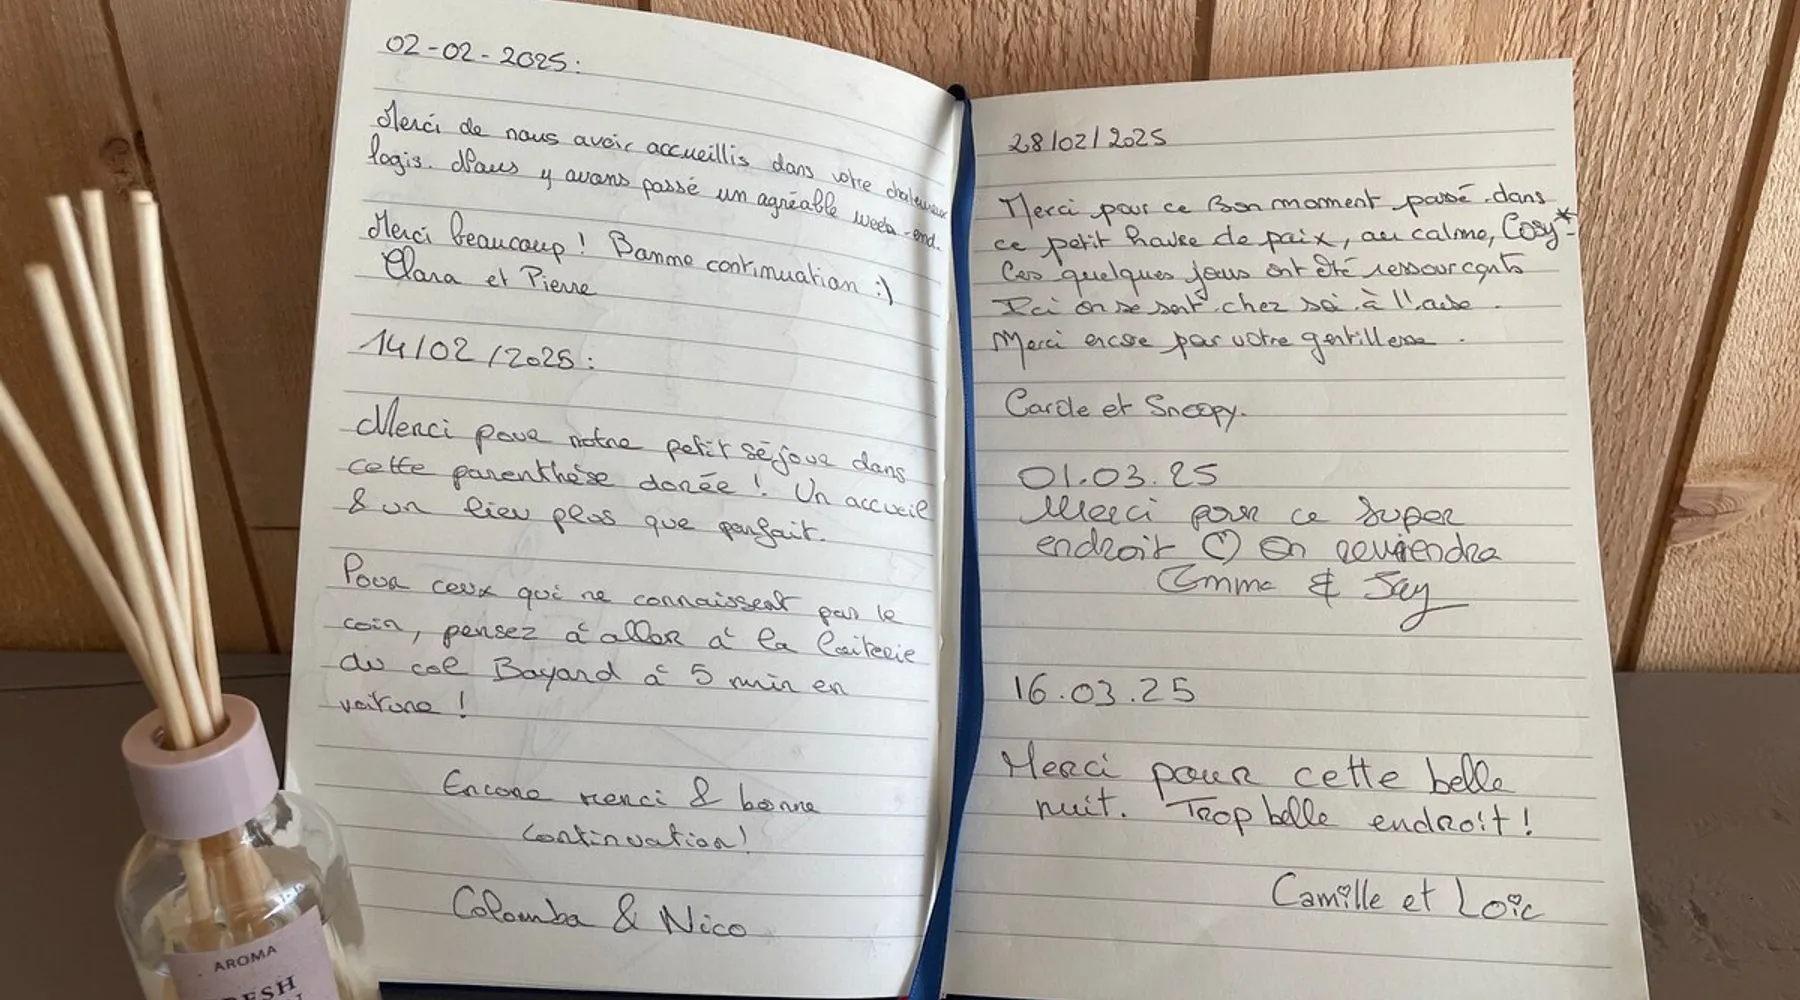 02-02-2025:
Merci de nous avoir accueillis dans votre chaleureux
logis. Nous y avons passé un agréable week-end.
Merci beaucoup ! Bonne continuation :)
Clara et Pierre
14/02/2025:
Merci pour notre petit séjour dans
cette parenthèse dorée ! Un accueil
& un lieu plus que parfait.
Pour ceux qui ne connaissent pas le
coin, pensez à aller à la laiterie
du col Bayard à 5 min en
voiture !
Encore merci & bonne
continuation!
Colomba & Nico
28/02/2025
Merci pour ce Bon moment passé dans
ce petit havre de paix, au calme, Cosy*
Ces quelques jours ont été ressourçants
Ici on se sent chez soi à l'aise.
Merci encore par votre gentillesse.
Carole et Snoopy.
01.03.25
Merci pour ce super
endroit ♡ On reviendra
Emma & Jay
16.03.25
Merci pour cette belle
nuit. Trop belle endroit!
Camille et Loïc
AROMA